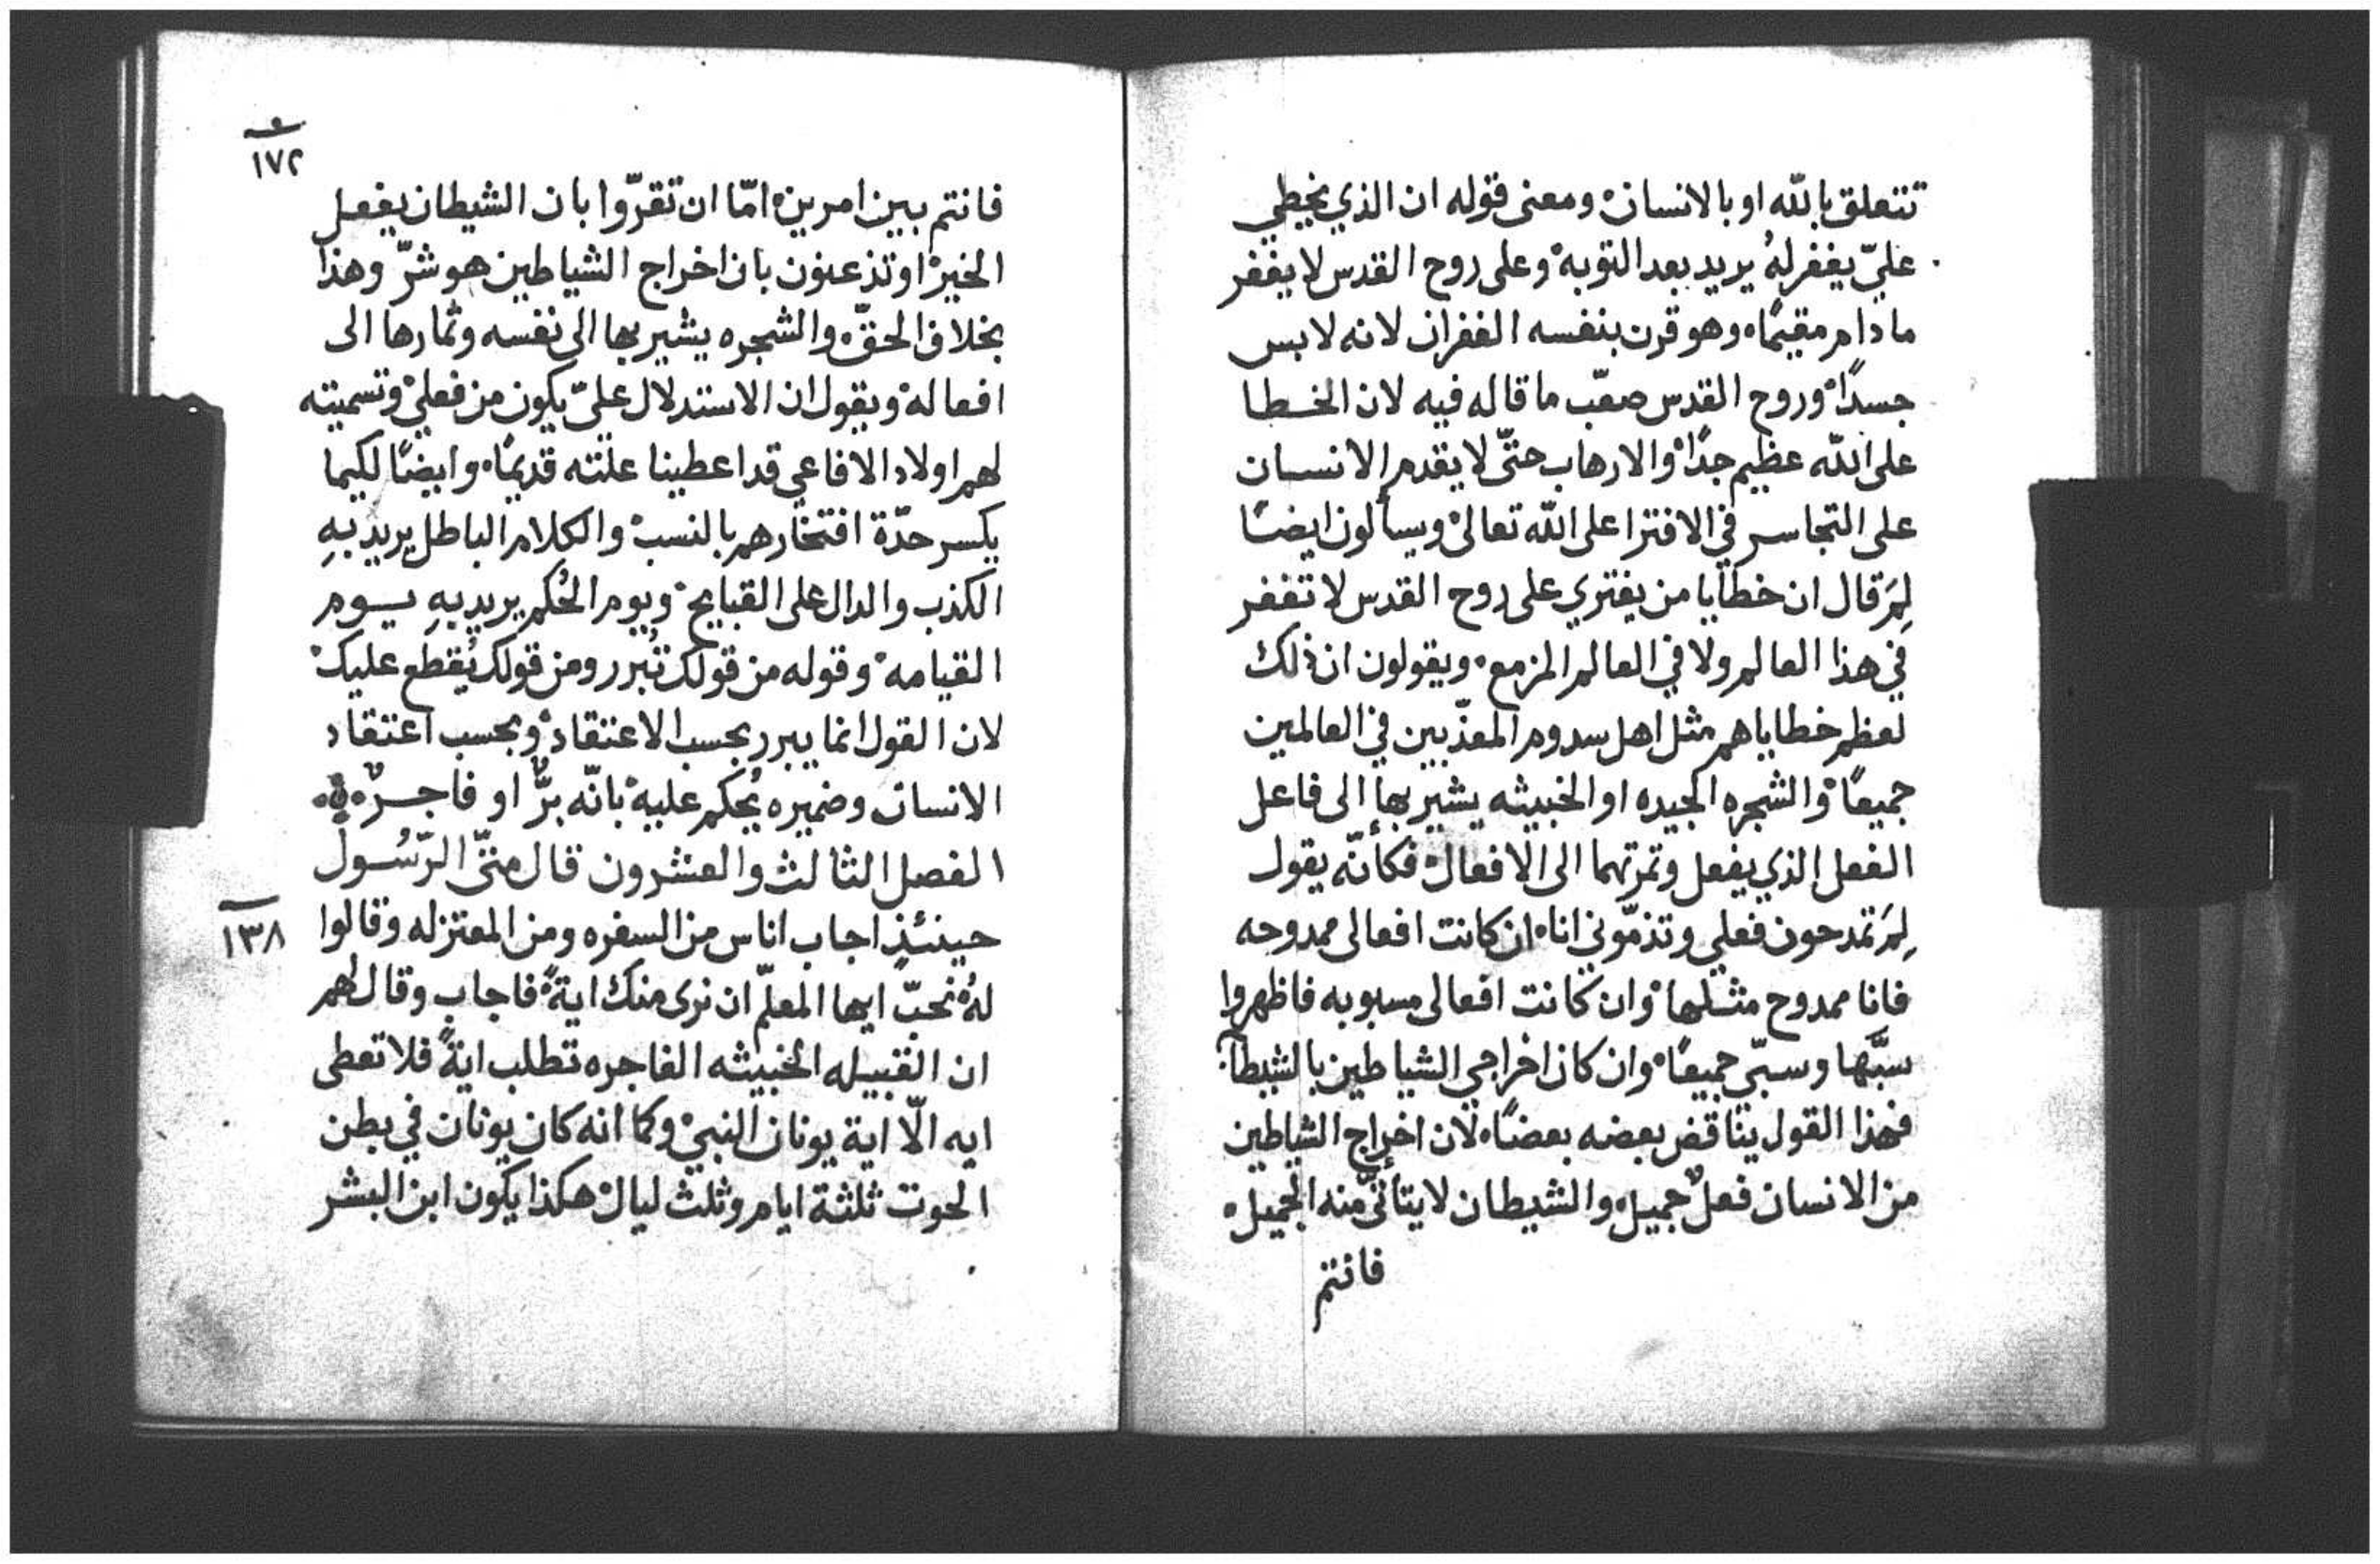 تتعلق بالله او بالانسان ومعنى قوله ان الذي يخطي
عليّ يغفر لهُ يريد بعد التوبه وعلى روح القدس لا يغفر
ما دام مقيمًا وهو قرن بنفسه الغفران لانه لابس
جسدًا وروح القدس صعّب ما قاله فيه لان الخطا
على الله عظيم جدًا والارهاب حتّى لا يقدم الانسان
على التجاسر في الافترا على الله تعالى ويسألون ايضًا
لِمَ قال ان خطايا من يفتري على روح القدس لا تغفر
في هذا العالم ولا في العالم المزمع ويقولون ان ذلك
لعظم خطاياهم مثل اهل سدوم المعذّبين في العالمين
جميعًا والشجره الجيده او الخبيثه يشير بها الى فاعل
الفعل الذي يفعل وثمرتهما الى الافعال فكأنّه يقول
لِمَ تمدحون فعلي وتذمّوني انا ان كانت افعالى ممدوحه
فانا ممدوح مثلها وان كانت افعالى مسبوبه فاظهروا
سبَّها وسبّي جميعًا وان كان اخراجي الشياطين بالشيطان
فهذا القول يناقض بعضه بعضًا لان اخراج الشياطين
من الانسان فعلٌ جميل والشيطان لا يتأتّى منه الجميل
فانتم
١٧٢
فانتم بين امرين امّا ان تقرّوا بان الشيطان يفعل
الخير او تذعنون بان اخراج الشياطين هو شرّ وهذا
بخلاف الحقّ والشجره يشير بها الى نفسه وثمارها الى
افعاله ويقول ان الاستدلال عليّ يكون من فعلي وتسميته
لهم اولاد الافاعي قد اعطينا علته قديمًا وايضًا لكيما
يكسر حدّة افتخارهم بالنسب والكلام الباطل يريد بهِ
الكذب والدال على القبايح ويوم الحُكم يريد بهِ يوم
القيامه وقوله من قولك تُبرر ومن قولك يُقطع عليك
لان القول انما يبرر بحسب الاعتقاد وبحسب اعتقاد
الانسان وضميره يُحكم عليه بانّه برٌّ او فاجرٌ
الفصل الثالث والعشرون قال متّى الرّسُول
١٣٨
حينئذٍ اجاب اناس من السفره ومن المعتزله وقالوا
لهُ نحبّ ايها المعلّم ان نرى منك ايةً فاجاب وقال لهم
ان القبيله الخبيثه الفاجره تطلب ايةً فلا تعطى
ايه الّا اية يونان النبي وكما انه كان يونان في بطن
الحوت ثلثة ايام وثلث ليال هكذا يكون ابن البشر